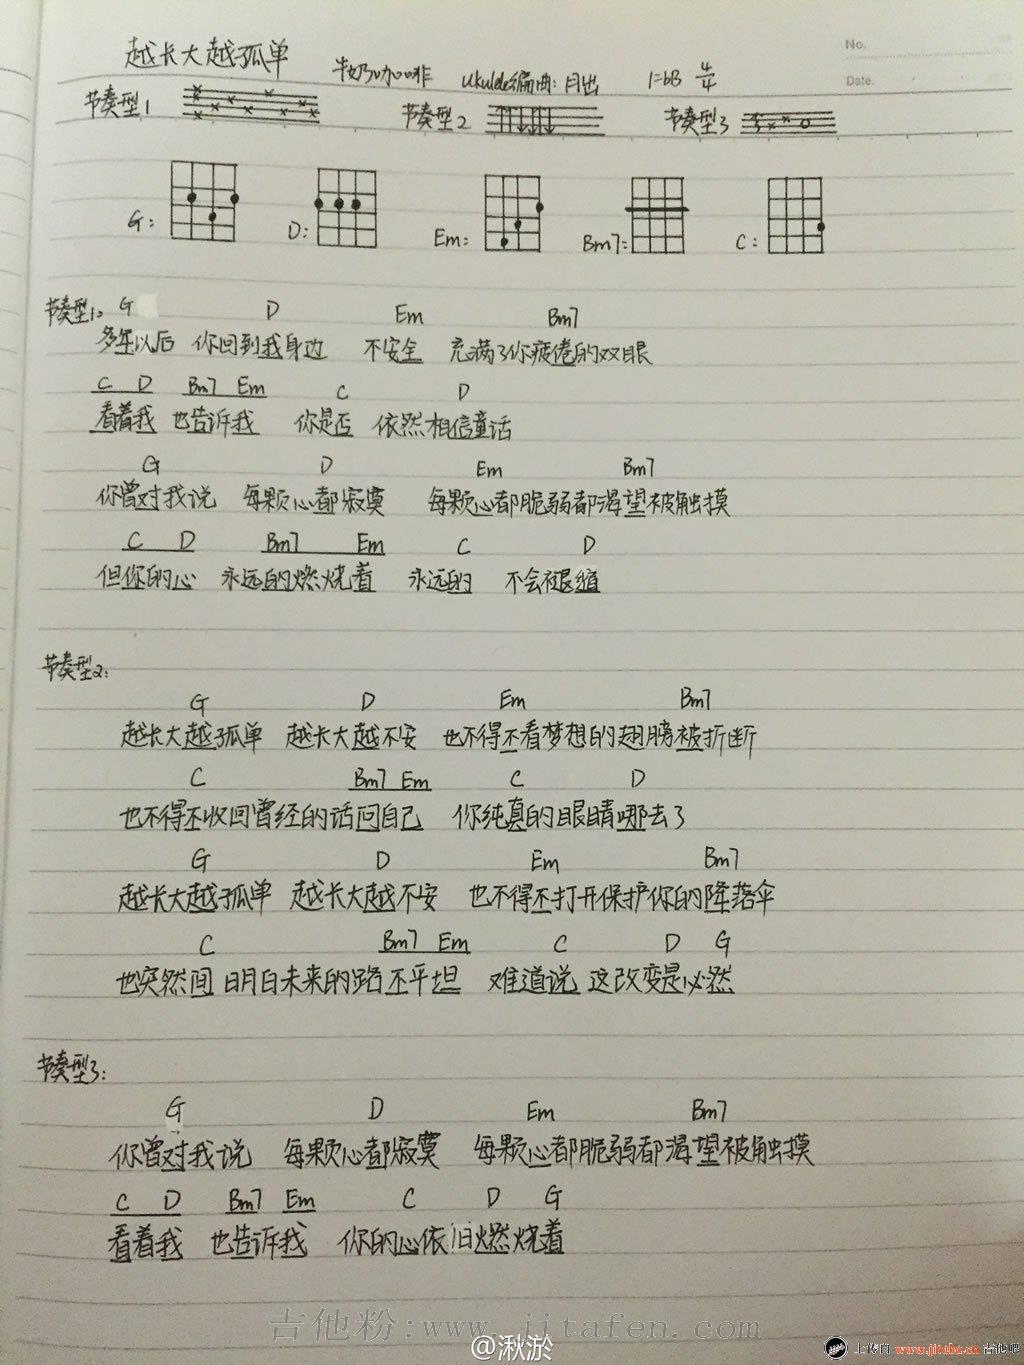 No.
Date.
越长大越孤单 牛奶咖啡 ukulele编曲: 月出 1=bB 4/4
节奏型1 节奏型2 节奏型3
G: D: Em: Bm7: C:
节奏型1。 G D Em Bm7
多年以后 你回到我身边 不安全 充满了你疲倦的双眼
C D Bm7 Em C D
看着我 也告诉我 你是否 依然相信童话
G D Em Bm7
你曾对我说 每颗心都寂寞 每颗心都脆弱都渴望被触摸
C D Bm7 Em C D
但你的心 永远的燃烧着 永远的 不会被退缩
节奏型2:
G D Em Bm7
越长大越孤单 越长大越不安 也不得不看梦想的翅膀被折断
C Bm7 Em C D
也不得不收回曾经的话问自己 你纯真的眼睛哪去了
G D Em Bm7
越长大越孤单 越长大越不安 也不得不打开保护你的降落伞
C Bm7 Em C D G
也突然间 明白未来的路不平坦 难道说 这改变是必然
节奏型3:
G D Em Bm7
你曾对我说 每颗心都寂寞 每颗心都脆弱都渴望被触摸
C D Bm7 Em C D G
看着我 也告诉我 你的心依旧燃烧着
吉他粉:www.jitafen.com
@湫淤
上传自 www.jitaba.cn 吉他吧